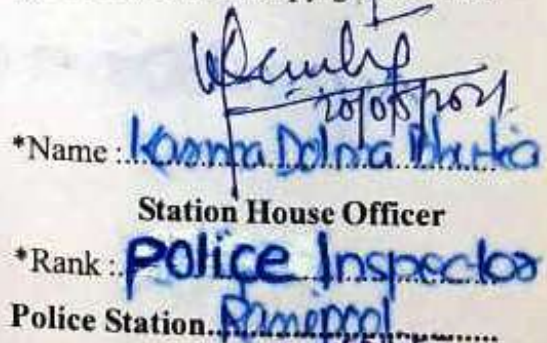 20/08/2021
*Name : Karma Dolma Bhutia
Station House Officer
*Rank : Police Inspector
Police Station Ranipool